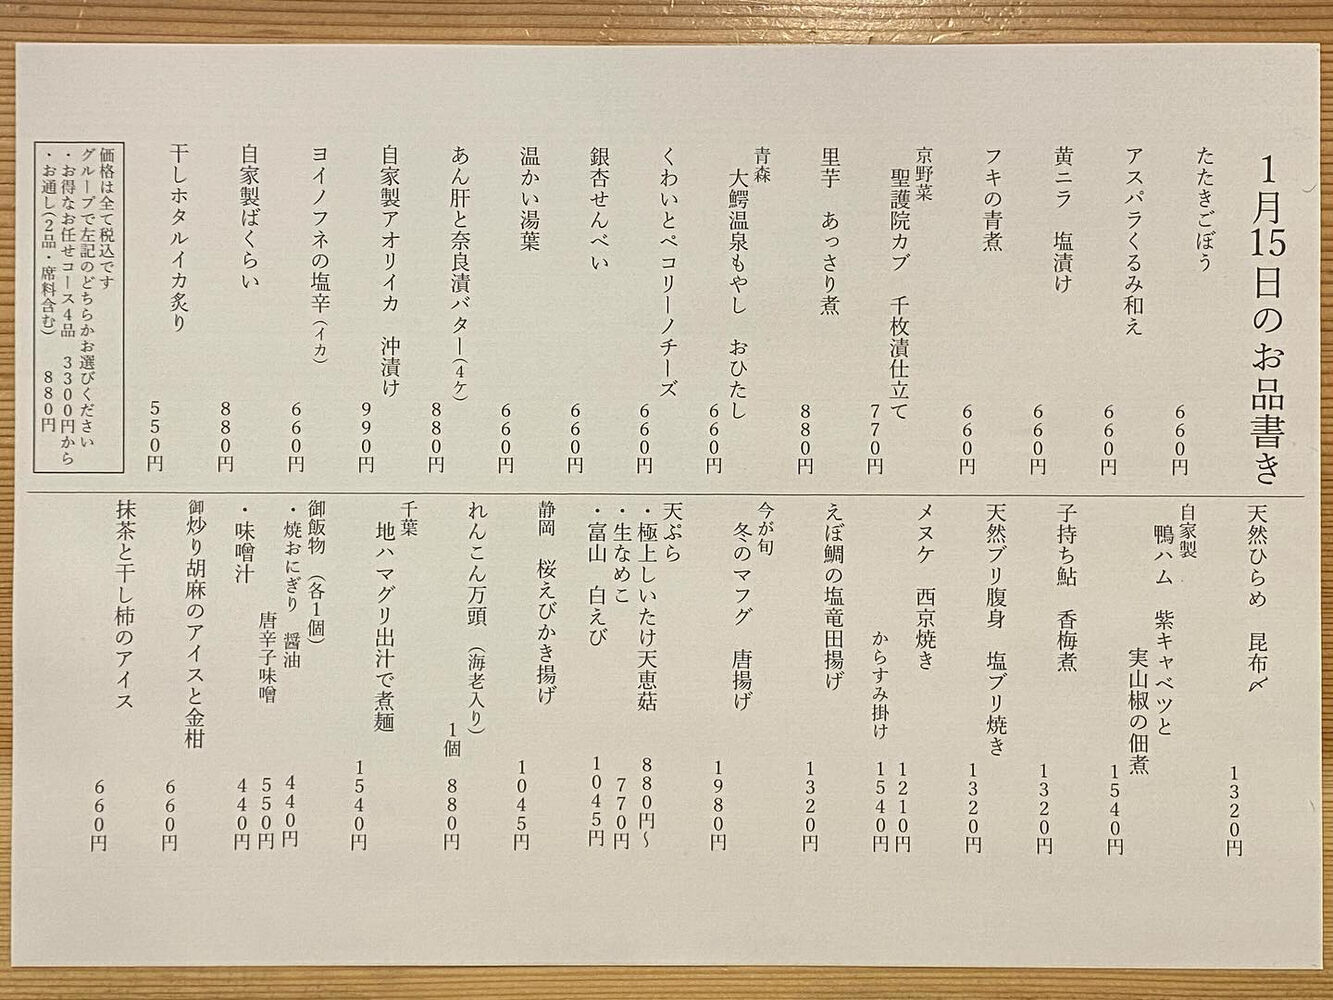 1月15日のお品書き
たたきごぼう 660円
アスパラくるみ和え 660円
黄ニラ 塩漬け 660円
フキの青煮 660円
京野菜
聖護院カブ 千枚漬仕立て 770円
里芋 あっさり煮 880円
青森
大鰐温泉もやし おひたし 660円
くわいとペコリーノチーズ 660円
銀杏せんべい 660円
温かい湯葉 660円
あん肝と奈良漬バター(4ケ) 880円
自家製アオリイカ 沖漬け 990円
ヨイノフネの塩辛(イカ) 660円
自家製ばくらい 880円
干しホタルイカ炙り 550円
価格は全て税込です
グループで左記のどちらかお選びください
・お得なお任せコース4品 3300円から
・お通し(2品・席料含む) 880円
天然ひらめ 昆布〆 1320円
自家製
鴨ハム 紫キャベツと
実山椒の佃煮 1540円
子持ち鮎 香梅煮 1320円
天然ブリ腹身 塩ブリ焼き 1320円
メヌケ 西京焼き 1210円
からすみ掛け 1540円
えぼ鯛の塩竜田揚げ 1320円
今が旬
冬のマフグ 唐揚げ 1980円
天ぷら
・極上しいたけ天恵菇 880円〜
・生なめこ 770円
・富山 白えび 1045円
静岡 桜えびかき揚げ 1045円
れんこん万頭(海老入り)
1個 880円
千葉
地ハマグリ出汁で煮麺 1540円
御飯物(各1個)
・焼おにぎり 醤油 440円
唐辛子味噌 550円
・味噌汁 440円
御炒り胡麻のアイスと金柑 660円
抹茶と干し柿のアイス 660円